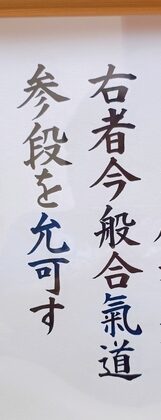 右者今般合氣道
参段を允可す